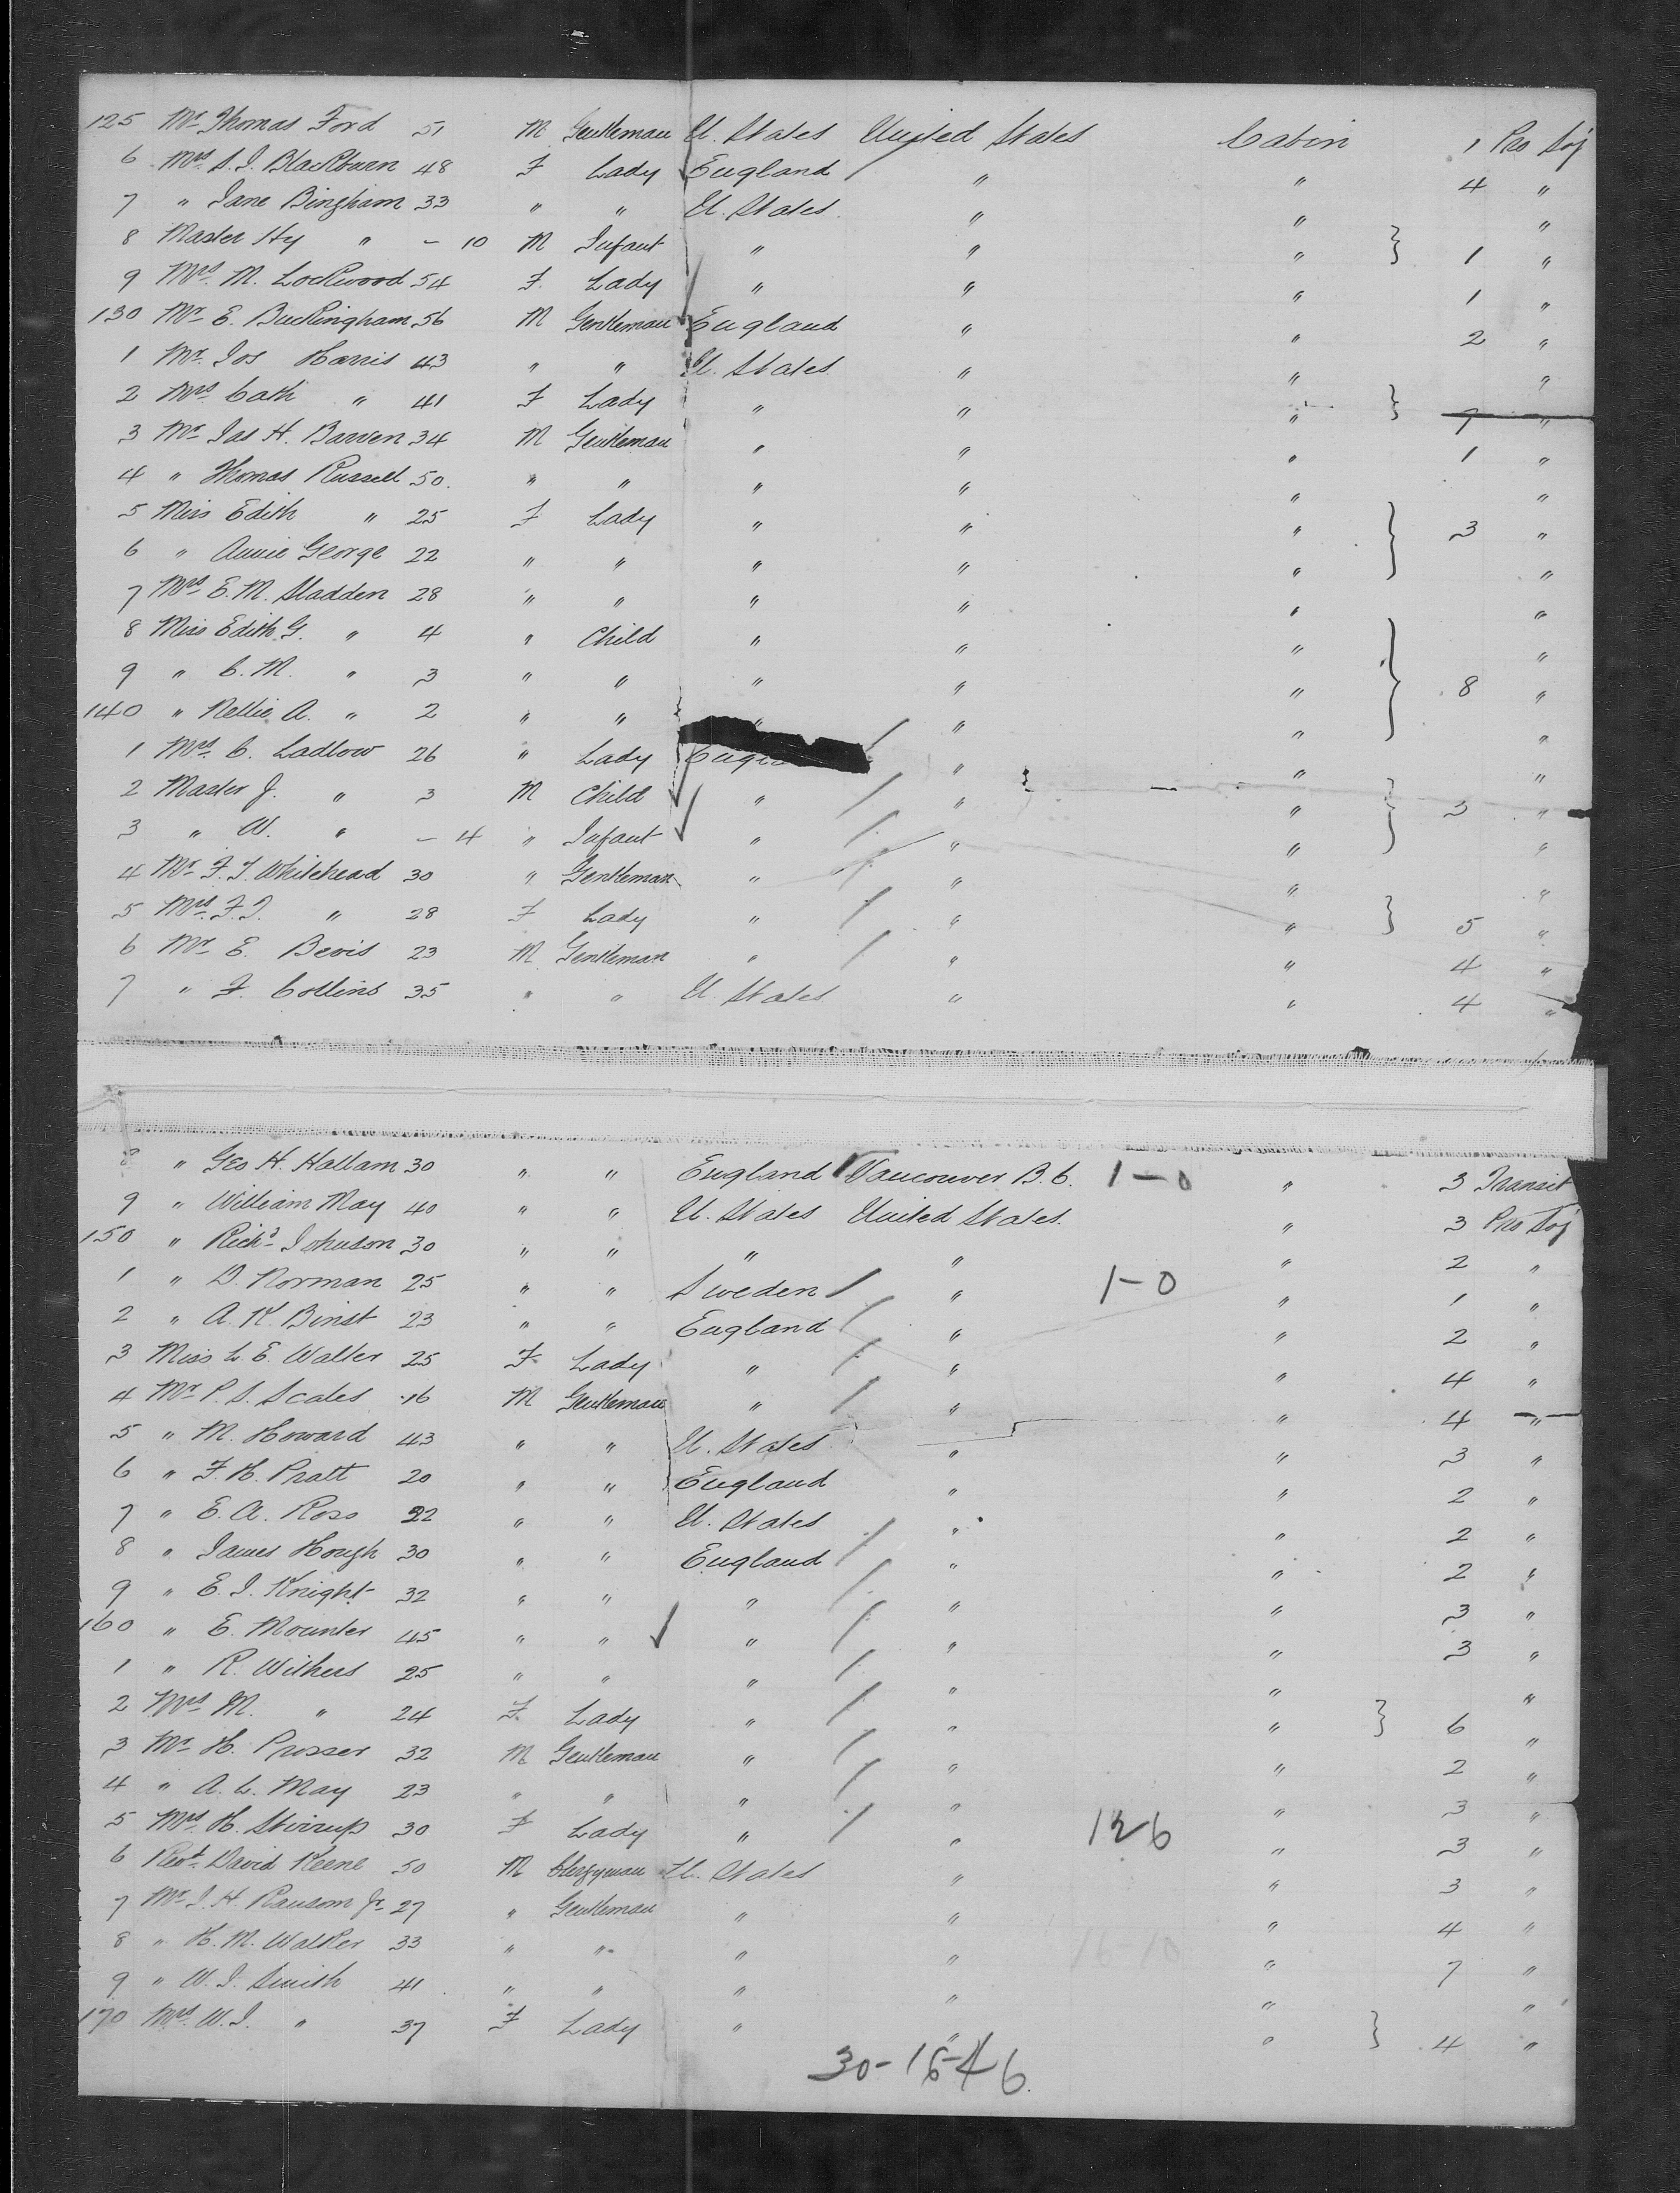 125 Mr Thomas Ford 51 M Gentleman U. States United States Cabin 1 Pro Soj
6 Mrs S. J. Blackburn 48 F Lady England " " 4 "
7 " Jane Bingham 33 " " U. States " " "
8 Master Hy " - 10 M Infant " " " } 1 "
9 Mrs. M. Lockwood 54 F. Lady " " " 1 "
130 Mr E. Buckingham 56 M Gentleman England " " 2 "
1 Mr. Jos Harris 43 " " U. States " " "
2 Mrs Cath " 41 F Lady " " " } 7 "
3 Mr Jas H. Barren 34 M Gentleman " " " 1 "
4 " Thomas Russell 50. " " " " " "
5 Miss Edith " 25 F Lady " " " } 3 "
6 " Annie George 22 " " " " " "
7 Mrs E. M. Sladden 28 " " " " " "
8 Miss Edith G. " 4 " Child " " " "
9 " C. M. " 3 " " " " " } 8 "
140 " Nellie A. " 2 " " " " " "
1 Mrs. C. Ladlow 26 " Lady " " "
2 Master J. " 3 M Child " " " } 3 "
3 " W. " - 4 " Infant " " " "
4 Mr F. J. Whitehead 30 " Gentleman " " " "
5 Mrs. F. J. " 28 F Lady " " " } 5 "
6 Mr E. Bevis 23 M Gentleman " " " 4 "
7 " F. Collins 35 " " U. States " " 4 "
8 " Geo H. Hallam 30 " " England Vancouver B. C. 1-0 " 3 Transit
9 " William May 40 " " U. States United States. " 3 Pro Soj
150 " Richd Johnson 30 " " " " " 2 "
1 " D. Norman 25 " " Sweden " 1-0 " 1 "
2 " A. K. Binst 23 " " England " " 2 "
3 Miss L. E. Walter 25 F Lady " " " 4 "
4 Mr P. S. Scales 16 M Gentleman " " " 4 "
5 " M. Howard 43 " " U. States " " 3 "
6 " F. H. Pratt 20 " " England " " 2 "
7 " E. A. Ross 22 " " U. States " " 2 "
8 " James Hough 30 " " England " " 2 "
9 " E. J. Knight 32 " " " " " 3 "
160 " E. Mounter 45 " " " " " 3 "
1 " R. Withers 25 " " " " " "
2 Mrs M. " 24 F. Lady " " " } 6 "
3 Mr H. Prosser 32 M Gentleman " " " 2 "
4 " A. L. May 23 " " " " " 3 "
5 Mrs H. Stirrup 30 F Lady " " 126 " 3 "
6 Revd. David Keene 50 M Clergyman U. States " " 3 "
7 Mr J. H. Ransom Jr 27 " Gentleman " " " 4 "
8 " H. M. Walker 33 " " " " " 7 "
9 " W. J. Smith 41 " " " " " "
170 Mrs. W. J. " 37 F Lady " " " } 4 "
30-16-46